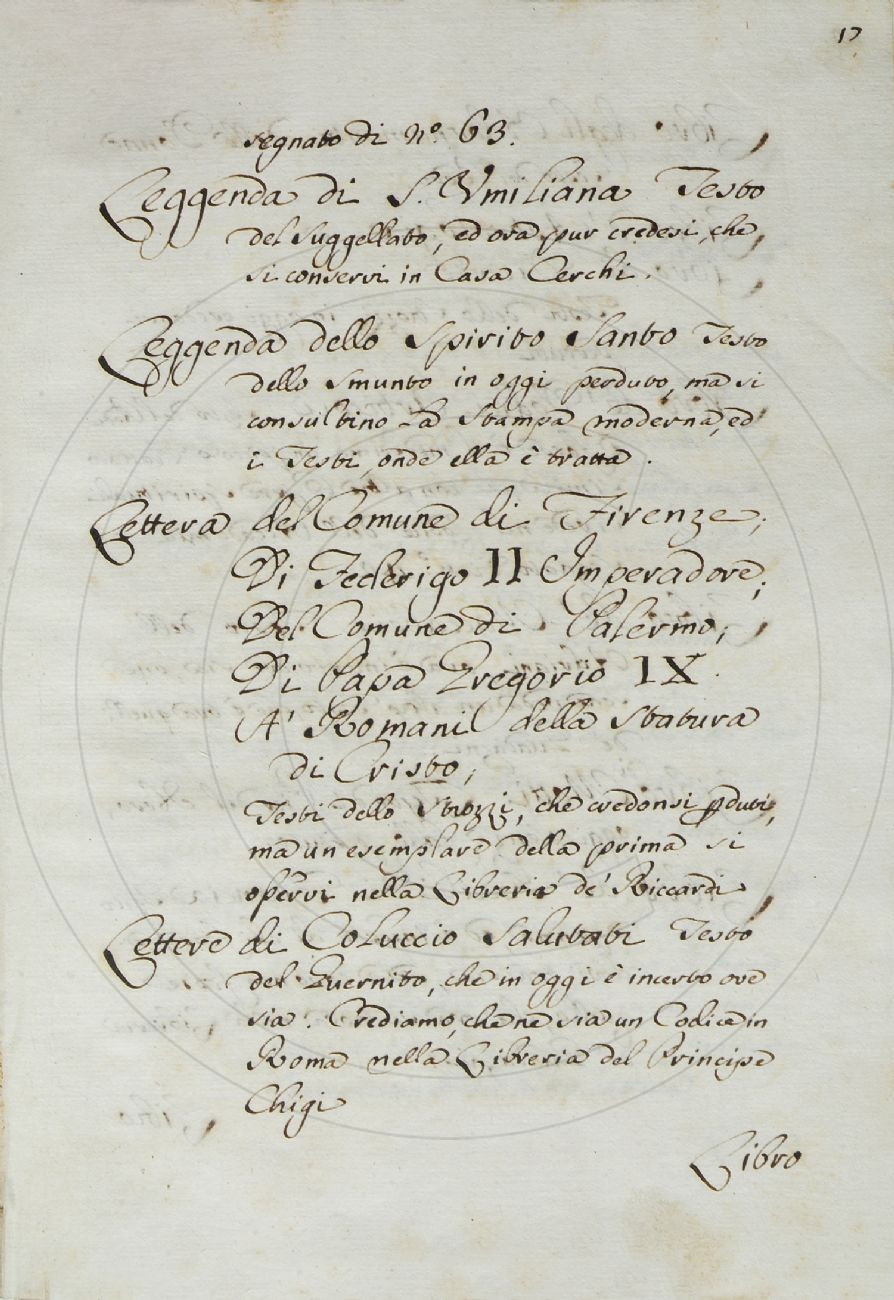 17
segnato di n.° 63.
Leggenda di S. Vmiliana Testo
del Suggellato, ed ora pur credesi, che
si conservi in Casa Cerchi.
Leggenda dello Spirito Santo Testo
dello Smunto in oggi perduto, ma si
consultino La Stampa moderna, ed
i Testi, onde ella è tratta.
Lettera del Comune di Firenze;
Di Federigo II Imperadore;
Del Comune di Palermo;
Di Papa Gregorio IX.
A' Romani della Statura
di Cristo;
Testi dello Strozzi, che credonsi perduti,
ma un esemplare della prima si
osservi nella Libreria de' Riccardi
Lettere di Coluccio Salutati Testo
del Guernito, che in oggi è incerto ove
sia. Crediamo, che ne sia un Codice in
Roma nella Libreria del Principe
Chigi
Libro